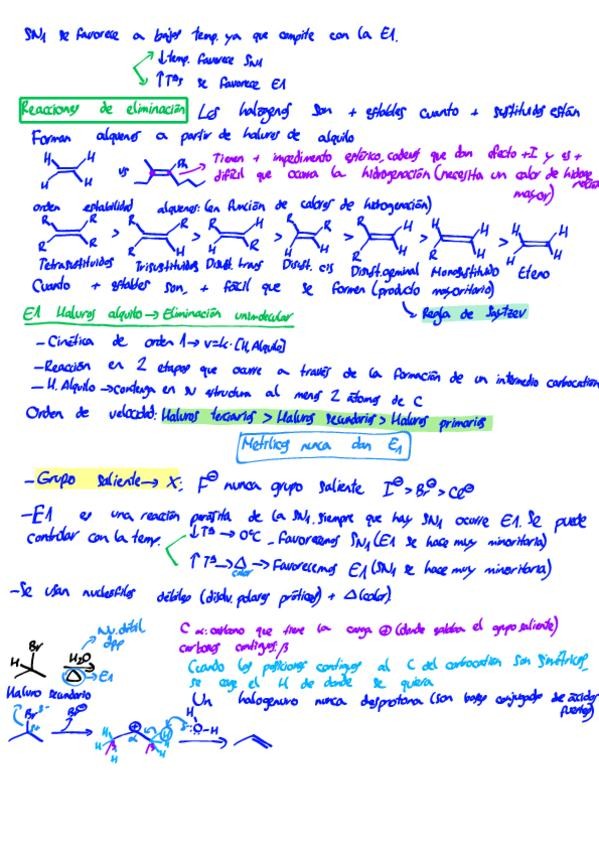 SN1 se favorece a bajas temp. ya que compite con la E1.
↓temp. favorece SN1
↑Tªs se favorece E1
Reacciones de eliminación Los halógenos son + estables cuanto + sustituidos están
Forman alquenos a partir de haluros de alquilo
H H H H vs Ph → Tienen + impedimento estérico, cadenas que dan efecto +I y es +
difícil que ocurra la hidrogenación (necesita un calor de hidroge
nación
mayor)
orden estabilidad alquenos: (en función de calores de hidrogenación)
R R R R > R R R H > R H H R > R R H H > R R H H > R H H H > H H H H
Tetrasustituidos Trisustituidos Disust. trans Disust. cis Disust. geminal Monosustituido Eteno
Cuanto + estables son, + fácil que se formen (producto mayoritario)
Regla de Saytzev
E1 Haluros alquilo → Eliminación unimolecular
- Cinética de orden 1 → v=k·[H, Alquilo]
- Reacción en 2 etapas que ocurre a través de la formación de un intermedio carbocation
- H. Alquilo → contenga en su estructura al menos 2 átomos de C
Orden de velocidad: Haluros terciarios > Haluros secundarios > Haluros primarios
Metílicos nunca dan E1
- Grupo saliente → X; F⊖ nunca grupo saliente I⊖ > Br⊖ > Cl⊖
- E1 es una reacción parásita de la SN1. Siempre que hay SN1 ocurre E1. Se puede
controlar con la temp. ↓Tª → 0ºC - Favorecemos SN1 (E1 se hace muy minoritaria)
↑Tª → Δ → Favorecemos E1 (SN1 se hace muy minoritaria)
calor
- Se usan nucleófilos débiles (disolv. polares próticos) + Δ(calor)
Nu. débil
dpp
C α: carbono que tiene la carga ⊕ (donde saldaba el grupo saliente)
carbonos contiguos β
Br H H2O Δ → E1
Cuando las posiciones contiguas al C del carbocation son simétricas,
se coge el H de donde se quiera
Haluro secundario
Un halogenuro nunca desprotona (son bases conjugadas de ácidos
fuertes)
Br δ- δ+ Br⊖ H H H β ⊕ α β H H H H O-H